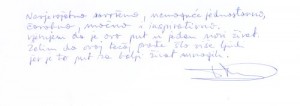 Nevjerojatno savršeno, nemoguće jednostavno,
čarobno, moćno i inspirativno,
vjerujem da je ovo put u jedan novi život.
Želim da ovaj tečaj prođe što više ljudi
jer je to put za bolji život mnogih.